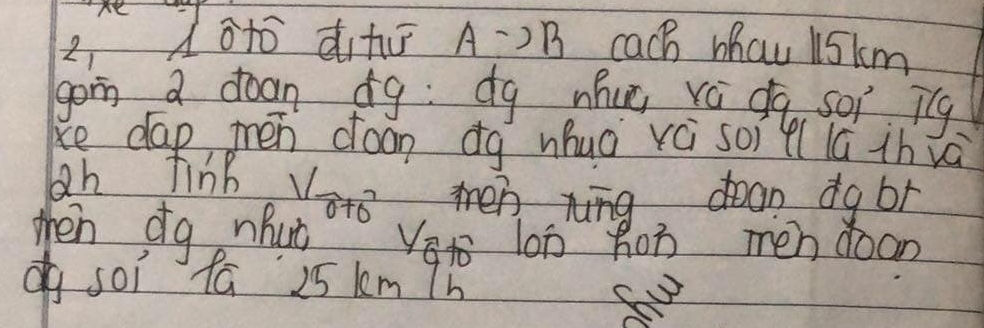 xe
2, 1 ôtô đi từ A->B cách nhau 115km
gồm 2 đoạn đg: đg nhựa và đg sỏi T/g
xe đạp trên đoạn đg nhựa và sỏi ll là 1h và
2h Tính V ôtô trên từng đoạn đg bt
trên đg nhựa V ôtô lớn hơn trên đoạn
đg sỏi là 25 km/h